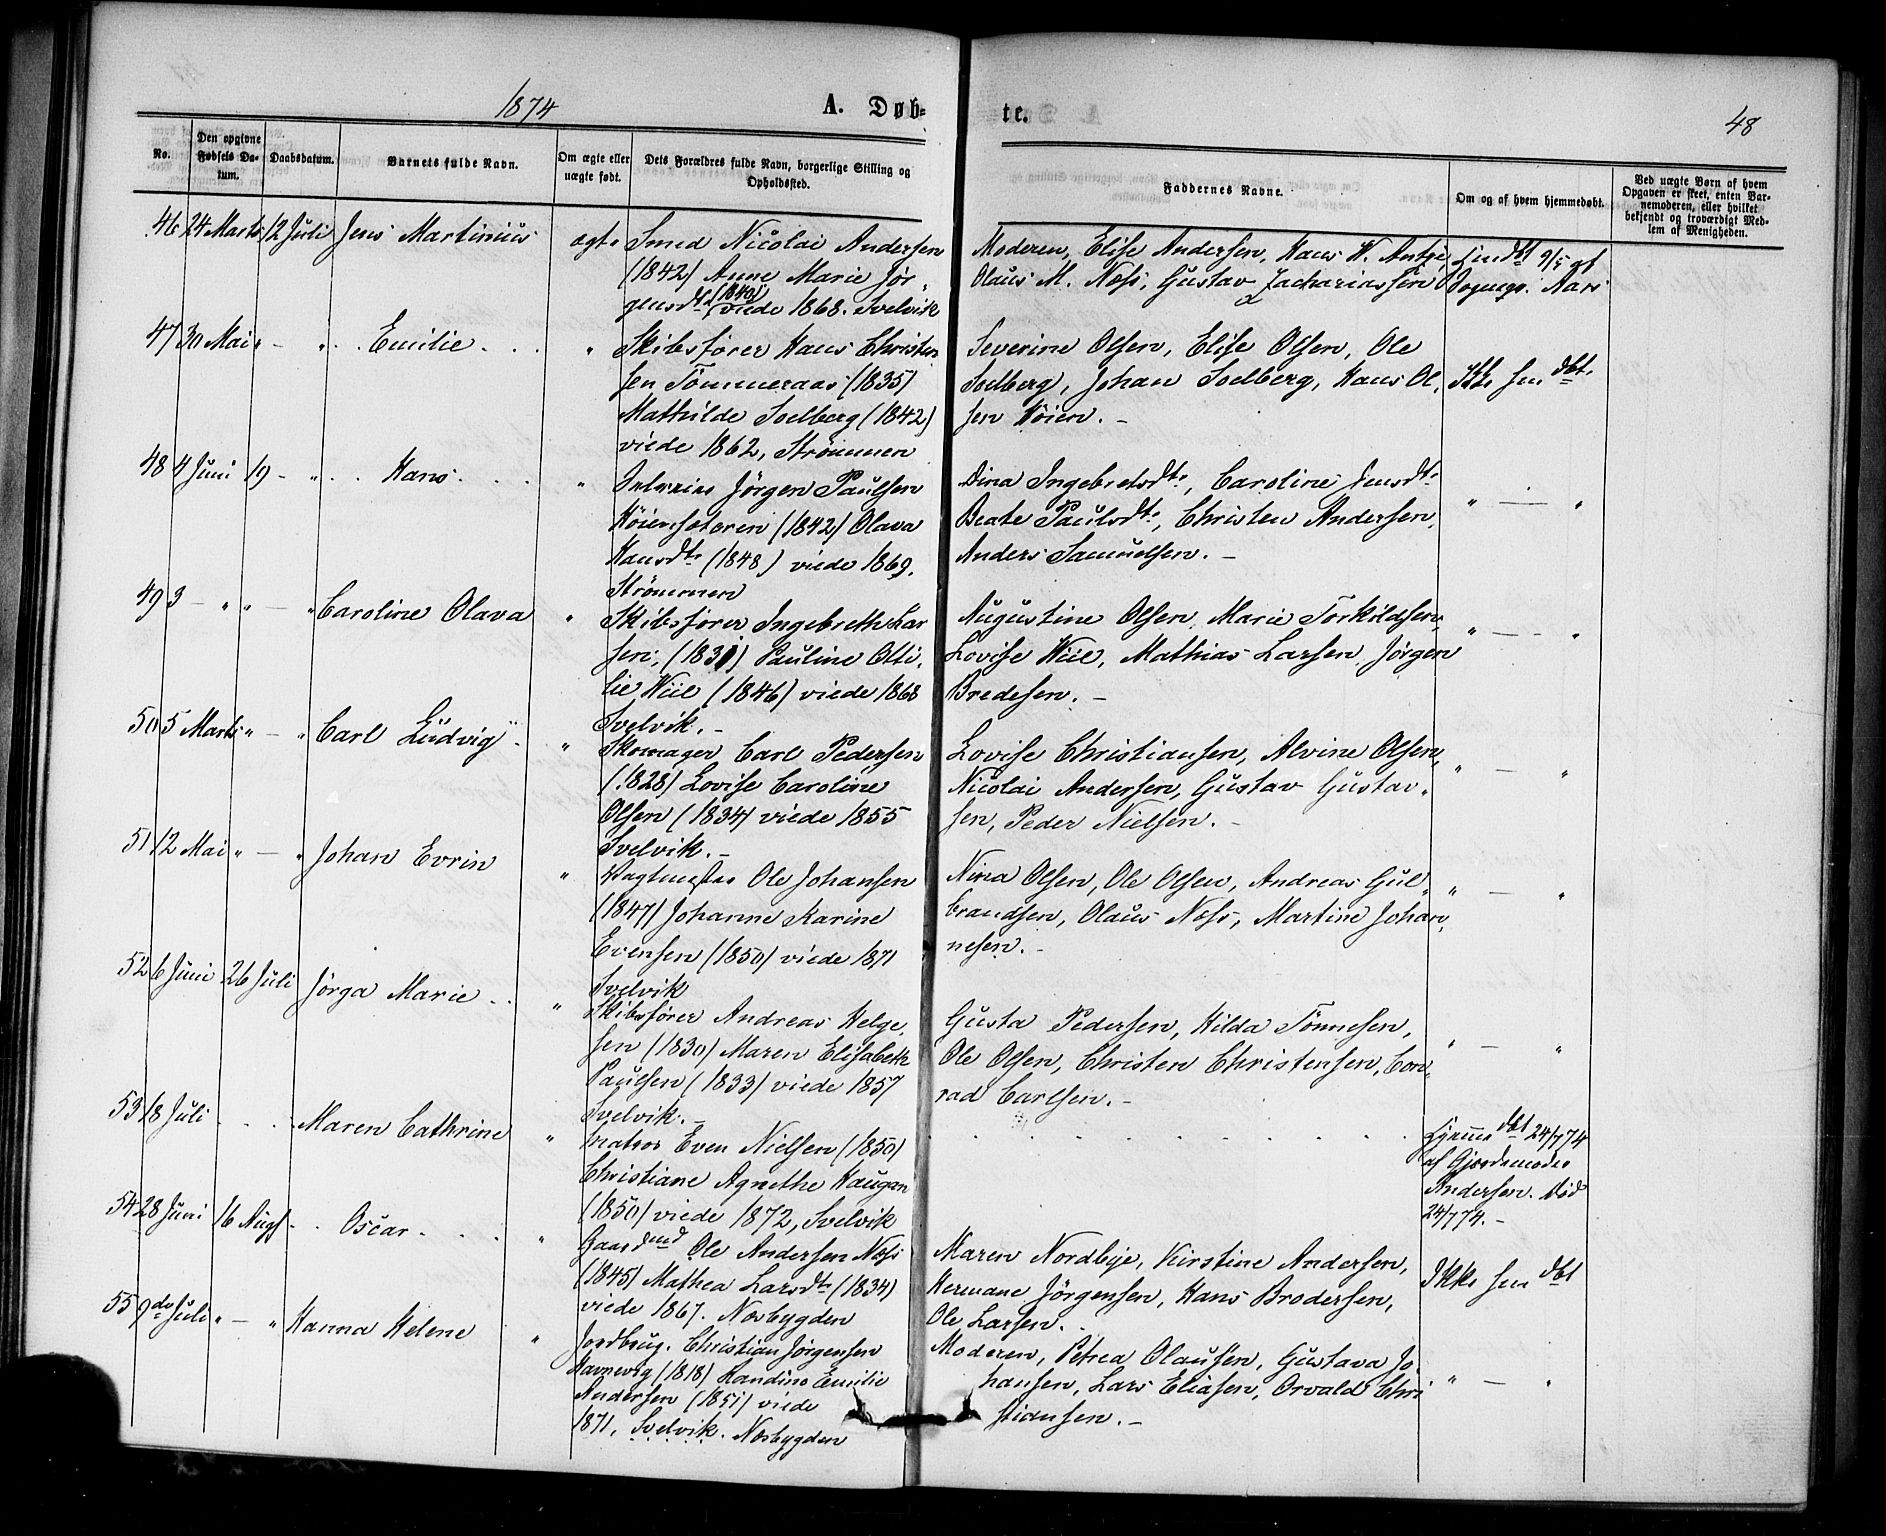 1874 A. Døb- te. 48
No.
Den opgivne Fødsels Da- tum.
Daabsdatum.
Barnets fulde Navn.
Om ægte eller uægte født.
Dets Forældres fulde Navn, borgerlige Stilling og Opholdssted.
Faddernes Navne.
Om og af hvem hjemmedøbt.
Ved uægte Børn af hvem Opgaven er skeet, enten Bar- nemoderen, eller hvilket bekjendt og troværdigt Med- lem af Menigheden.
46 24 Marts 12 Juli Jens Martinius ægte Smed Nicolai Andersen
(1842) Anne Marie Jør-
gensdtr (1840) viede 1868. Svelvik
Moderen, Elise Andersen, Hans H.
Olaus M. Næss, Gustav Zachariassen
47 30 Mai " - " Emilie " Skibsfører Hans Christen
sen Tömmeraas (1835)
Mathilde Soelberg (1842)
viede 1862, Strömmen
Severine Olsen, Elise Olsen, Ole
Soelberg, Johan Soelberg, Hans Ol-
sen Höien. -
Ikke hm dbt.
48 4 Juni 19 - " Hans "
Jörgen Paulsen
Höiensæteren (1842) Olava
Hansdtr (1848) viede 1869.
Strömmen
Dina Ingebretsdtr, Caroline Jensdtr
Beate Paulsdtr, Christen Andersen,
Anders Samuelsen. -
" - "
49 3 - " " - " Caroline Olava " Skibsfører Ingebreth Lar
sen, (1831) Pauline Otti-
lie Wiil (1846) viede 1868
Svelvik. -
Augustine Olsen, Marie Torkildsen,
Lovise Wiil, Mathias Larsen, Jörgen
Bredesen. -
" - "
50 5 Marts " - " Carl Ludvig " Skomager Carl Pedersen
(1828) Lovise Caroline
Olsen (1834) viede 1855
Svelvik. -
Lovise Christiansen, Alvine Olsen,
Nicolai Andersen, Gustav Gustav-
sen, Peder Nielsen. -
" - "
51 12 Mai " - " Johan Evrin " Vagtmester Ole Johansen
(1847) Johanne Karine
Evensen (1850) viede 1871
Svelvik
Nina Olsen, Ole Olsen, Andreas Gul-
brandsen, Olaus Næss, Martine Johan-
nesen. -
" - "
52 6 Juni 26 Juli Jørga Marie " Skibsfører Andreas Helge-
sen (1830) Maren Elisabeth
Paulsen (1833) viede 1857
Svelvik. -
Gusta Pedersen, Hilda Tönnesen,
Ole Olsen, Christen Christensen, Con-
rad Carlsen. -
" - "
53 18 Juli Maren Cathrine " Matros Even Nielsen (1850)
Christiane Agnethe Haugan
(1850) viede 1872, Svelvik
dbt 24/7 74
af Gjordemoder
Andersen. Død
24/7 74. -
54 28 Juni 16 Augst Oscar " Gaardmd Ole Andersen Næss
(1845) Mathea Larsdtr (1834)
viede 1867. Næsbygden
Maren Nordbye, Kirstine Andersen,
Hermane Jörgensen, Hans Brodersen,
Ole Larsen.
Ikke hm dbt
55 9de Juli " - " Hanna Helene " Jordbrug. Christian Jörgensen
Havnevig (1818) Handine Emilie
Andersen (1851) viede
1871, Svelvik. Næsbygden
Moderen, Petrea Olausen, Gustava Jo-
hansen, Lars Eliasen, Orvald Chri
stiansen. -
" - "